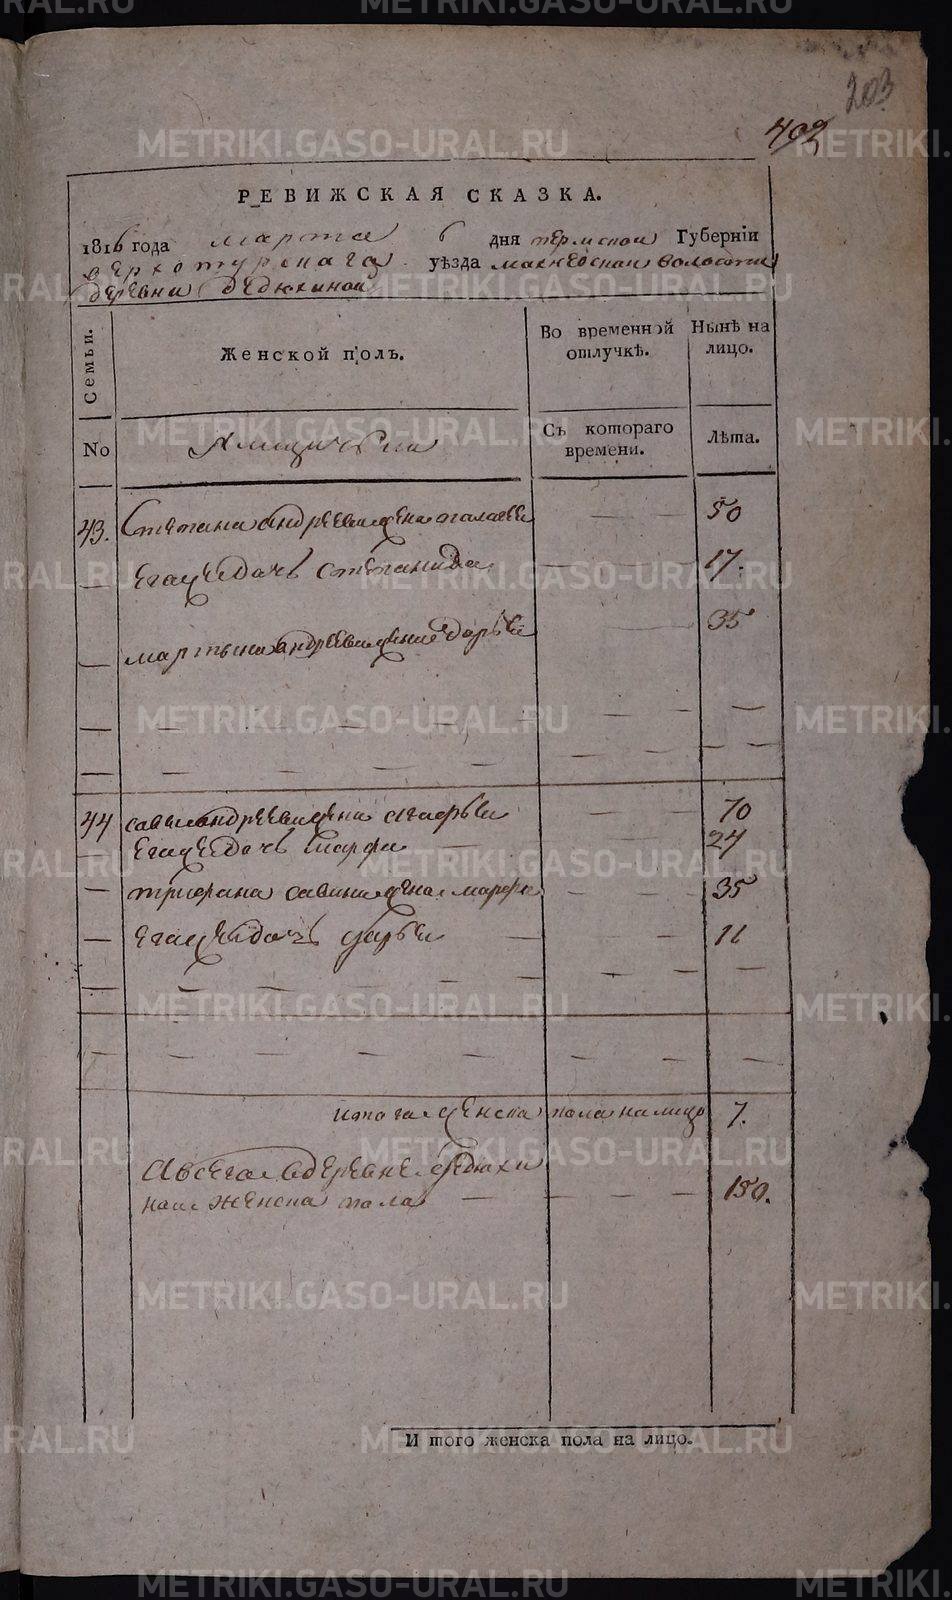 203
402
РЕВИЖСКАЯ СКАЗКА.
1816 года марта 6 дня пермской Губернїи
верхотурскаго уѣзда махневской волости
деревни дедюхиной
Семьи.
Женской полъ.
Во временной отлучкѣ.
Нынѣ на лицо.
No
Съ котораго времени.
Лѣта.
43. Степана андреева жена 50
его же дочь степанида 17.
мартына андреева жена дарья 35
44 савы андреева жена 70
его же дочь марфа 24
трифана савина жена марфа 35
его же дочь дарья 11
итого женска пола на лицо 7.
А всего в деревне дедюхи
ной женска пола 150.
И того женска пола на лицо.
METRIKI.GASO-URAL.RU